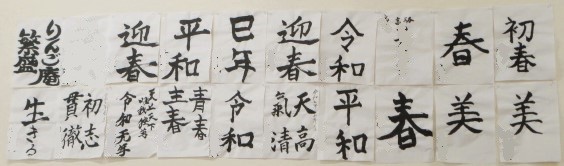 りんご庵
繁盛
迎春
平和
巳年
迎春
令和
春
初春
生きる
初志
貫徹
令和元年
青春
圭春
令和
天高
氣清
平和
春
美
美